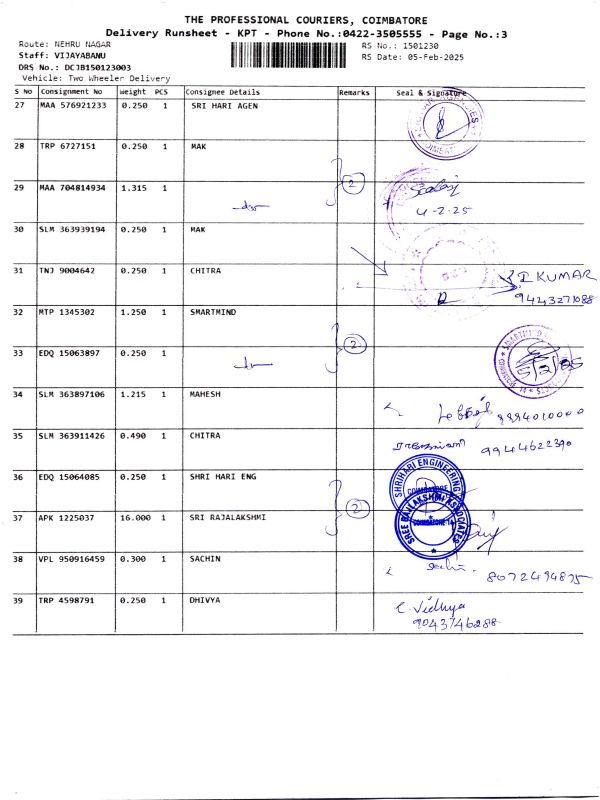 THE PROFESSIONAL COURIERS, COIMBATORE
Delivery Runsheet - KPT - Phone No.:0422-3505555 - Page No.:3
Route: NEHRU NAGAR RS No.: 1501230
Staff: VIJAYABANU RS Date: 05-Feb-2025
DRS No.: DCJB150123003
Vehicle: Two Wheeler Delivery
S No Consignment No Weight PCS Consignee Details Remarks Seal & Signature
27 MAA 576921233 0.250 1 SRI HARI AGEN
28 TRP 6727151 0.250 1 MAK
2
29 MAA 704814934 1.315 1
4-2-25
30 SLM 363939194 0.250 1 MAK
31 TNJ 9004642 0.250 1 CHITRA KUMAR
9443271088
32 MTP 1345302 1.250 1 SMARTMIND
2
33 EDQ 15063897 0.250 1
5/2/25
34 SLM 363897106 1.215 1 MAHESH
9994010000
35 SLM 363911426 0.490 1 CHITRA
9944622390
36 EDQ 15064085 0.250 1 SHRI HARI ENG SHRIHARI ENGINEERING
COIMBATORE
2
37 APK 1225037 16.000 1 SRI RAJALAKSHMI SREE RAJLAKSHMI ASSOCIATES
38 VPL 950916459 0.300 1 SACHIN
8072494875
39 TRP 4598791 0.250 1 DHIVYA C. Vidhya
9043746288